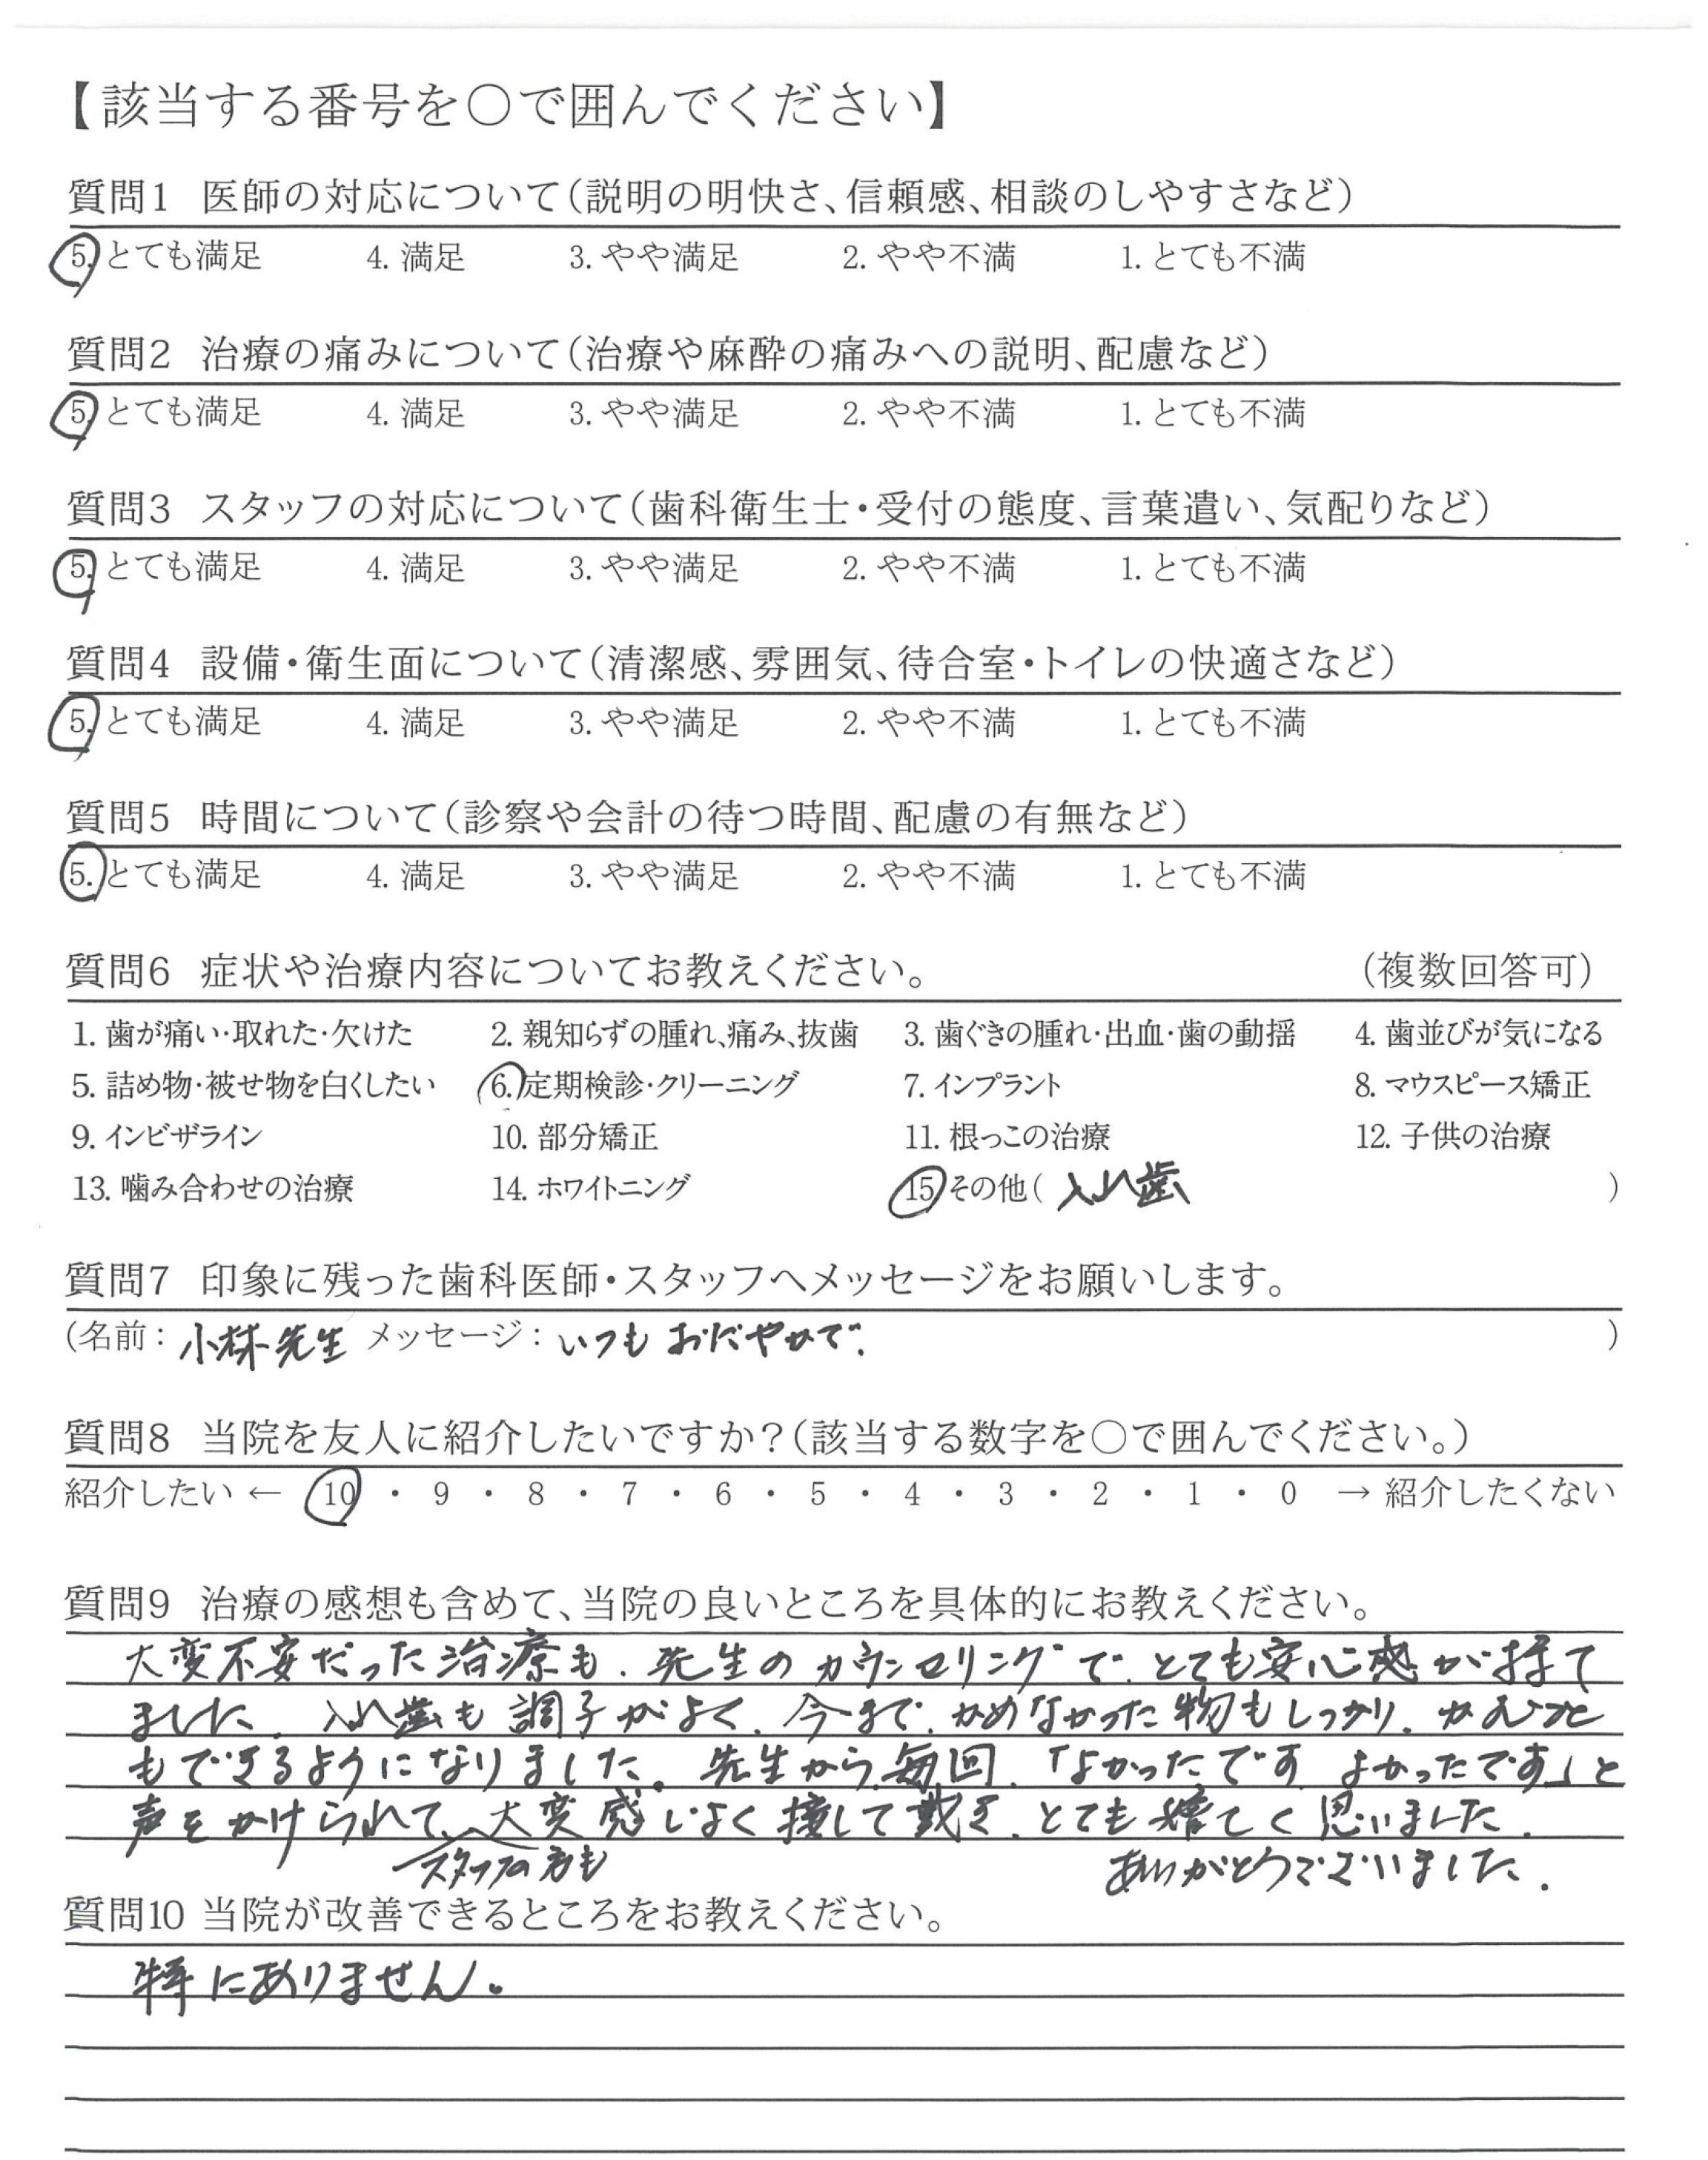 【該当する番号を〇で囲んでください】
質問1 医師の対応について(説明の明快さ、信頼感、相談のしやすさなど)
5. とても満足 4. 満足 3. やや満足 2. やや不満 1. とても不満
質問2 治療の痛みについて(治療や麻酔の痛みへの説明、配慮など)
5. とても満足 4. 満足 3. やや満足 2. やや不満 1. とても不満
質問3 スタッフの対応について(歯科衛生士・受付の態度、言葉遣い、気配りなど)
5. とても満足 4. 満足 3. やや満足 2. やや不満 1. とても不満
質問4 設備・衛生面について(清潔感、雰囲気、待合室・トイレの快適さなど)
5. とても満足 4. 満足 3. やや満足 2. やや不満 1. とても不満
質問5 時間について(診察や会計の待つ時間、配慮の有無など)
5. とても満足 4. 満足 3. やや満足 2. やや不満 1. とても不満
質問6 症状や治療内容についてお教えください。 (複数回答可)
1. 歯が痛い・取れた・欠けた 2. 親知らずの腫れ、痛み、抜歯 3. 歯ぐきの腫れ・出血・歯の動揺 4. 歯並びが気になる
5. 詰め物・被せ物を白くしたい 6. 定期検診・クリーニング 7. インプラント 8. マウスピース矯正
9. インビザライン 10. 部分矯正 11. 根っこの治療 12. 子供の治療
13. 噛み合わせの治療 14. ホワイトニング 15 その他( 入れ歯 )
質問7 印象に残った歯科医師・スタッフへメッセージをお願いします。
(名前: 小林先生 メッセージ: いつも おだやかで. )
質問8 当院を友人に紹介したいですか?(該当する数字を〇で囲んでください。)
紹介したい ← 10 ・ 9 ・ 8 ・ 7 ・ 6 ・ 5 ・ 4 ・ 3 ・ 2 ・ 1 ・ 0 → 紹介したくない
質問9 治療の感想も含めて、当院の良いところを具体的にお教えください。
大変不安だった治療も、先生のカウンセリングで、とても安心感が持て
ました、入れ歯も調子がよく、今まで、かめなかった物もしっかり、かむこと
もできるようになりました。先生から、毎回、「よかったです よかったです」と
声をかけられて、大変感じよく接して戴き、とても 思いました.
スタッフの方も ありがとうございました.
質問10 当院が改善できるところをお教えください。
特にありません。